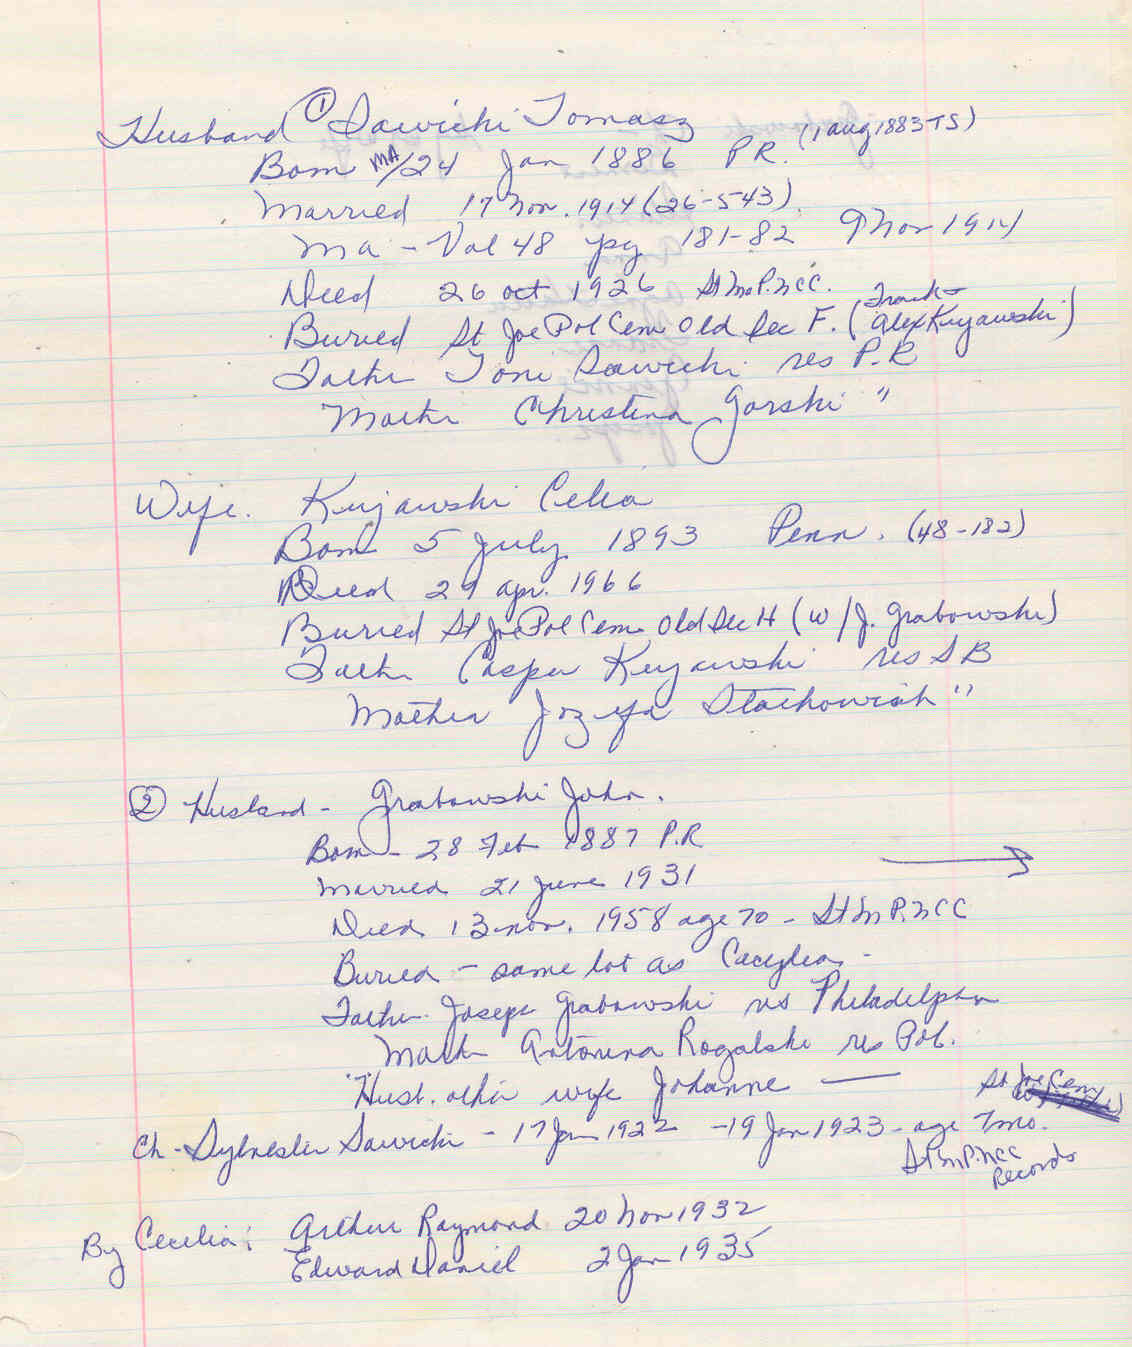 Husband ① Sawicki Tomasz (1 Aug 1883 TS)
Born MA/24 Jan 1886 P R.
Married 17 Nov. 1914 (26-543)
MA - Vol 48 pg 181-82 9 Nov 1914
Died 26 Oct 1926 St M P.N.C.C.
Buried St Joe Pol Cem Old Sec F. (Frank + Alex Kujawski)
Father Tom Sawicki res P.R
Mother Christina Gorski "
Wife. Kujawski Celia
Born 5 July 1893 Penn. (48-182)
Died 29 Apr. 1966
Buried St Joe Pol Cem Old Sec H (w/J. Grabowski)
Father Casper Kujawski res S B
Mother Jozefa Stachowiak "
② Husband - Grabowski John.
Born - 28 Feb 1887 P.R
Married 21 June 1931
Died 13 Nov. 1958 age 70 - St M P.N C C
Buried - same lot as Cecylia -
Father. Joseph Grabowski res Philadelphia
Mother Antonina Rogalski res Pol.
Husb. other wife Johanne —
St Joe Cem
Ch - Sylvester Sawicki - 17 Jan 1922 - 19 Jan 1923 - age 7 mo.
St M P.NCC
Records
By Cecelia: Arthur Raymond 20 Nov 1932
Edward Daniel 2 Jan 1935